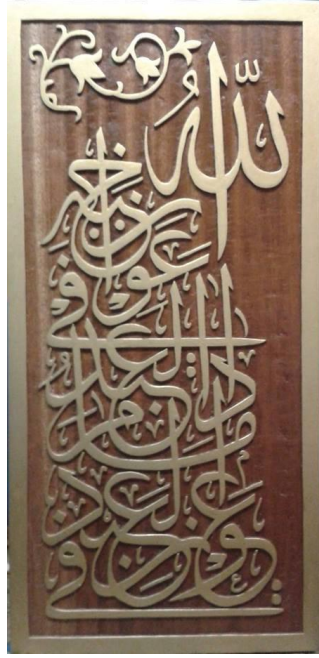 الله
في عون العبد
ما دام
العبد في
عون أخيه